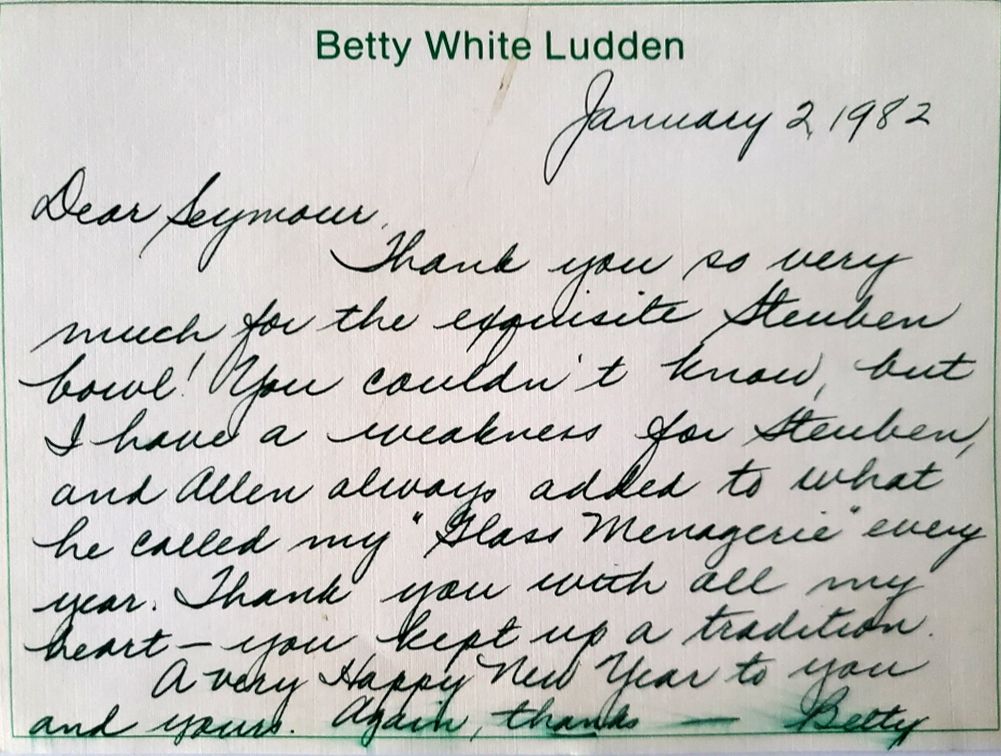 Betty White Ludden
January 2, 1982
Dear Seymour,
Thank you so very
much for the exquisite Steuben
bowl! You couldn't know, but
I have a weakness for Steuben,
and Allen always added to what
he called my "Glass Menagerie" every
year. Thank you with all my
heart — you kept up a tradition.
A very Happy New Year to you
and yours. Again, thanks — Betty